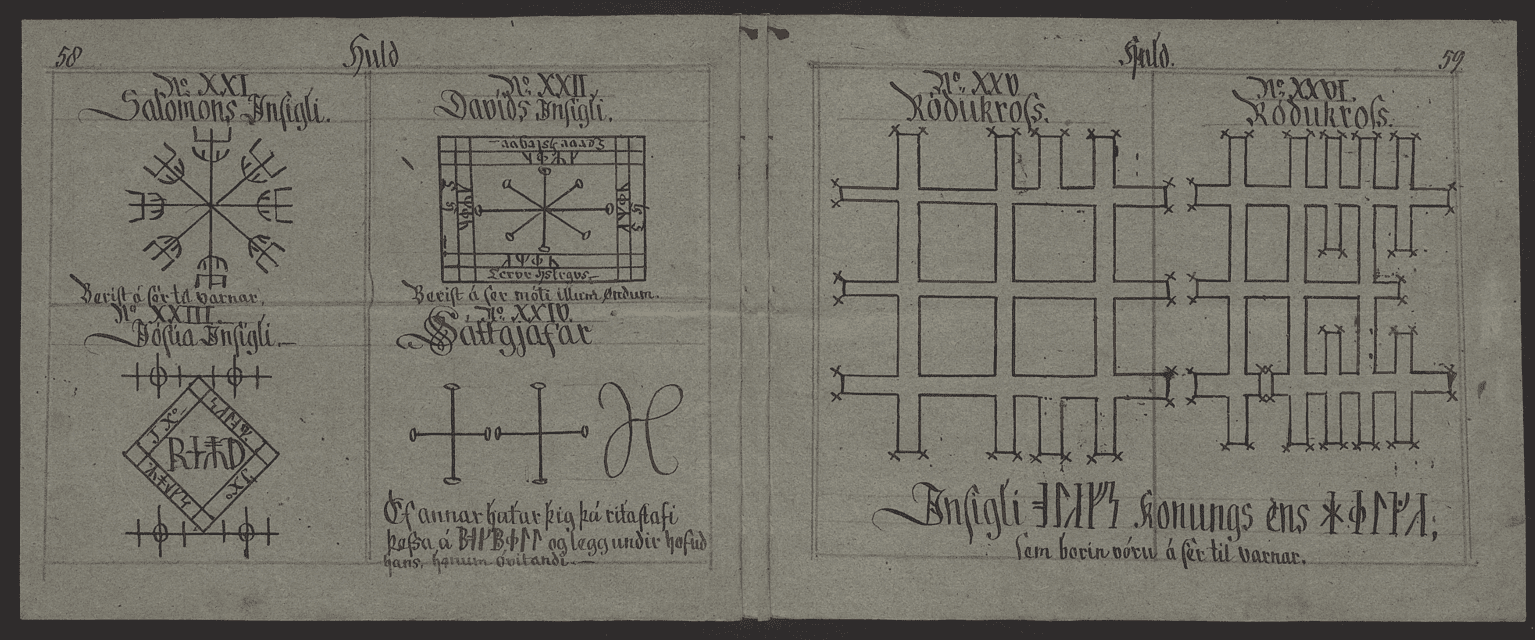 58
Huld
Nº XXI.
Salomons Insigli.
Beriſt á ſér til varnar,
Nº XXII.
Davíðs Insigli.
Beriſt á ſer móti illum öndum.
Nº XXIII.
Jósúa Insigli.
Nº XXIV.
Sattgjafar
Ef annar hatur þig þá rita ſtafi
þeßa á ᛒᚱᛅᚢᚦ og legg undir hofud
hans, honum óvitandi.
Huld.
59
Nº XXV
Róðukroſs.
Nº XXVI.
Róðukroſs.
Insigli konungs ens
ſem borin vóru á ſér til varnar.